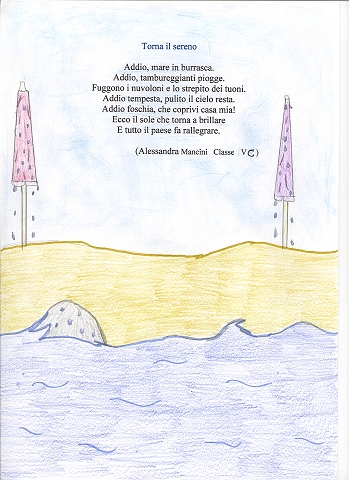 Torna il sereno
Addio, mare in burrasca.
Addio, tambureggianti piogge.
Fuggono i nuvoloni e lo strepito dei tuoni.
Addio tempesta, pulito il cielo resta.
Addio foschia, che coprivi casa mia!
Ecco il sole che torna a brillare
E tutto il paese fa rallegrare.
(Alessandra Mancini Classe VC)